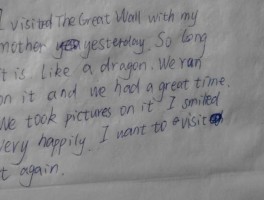 I visited The Great Wall with my
mother yesterday. So long
it is. Like a dragon. We ran
on it and we had a great time.
We took pictures on it. I smiled
very happily. I want to visit
it again.